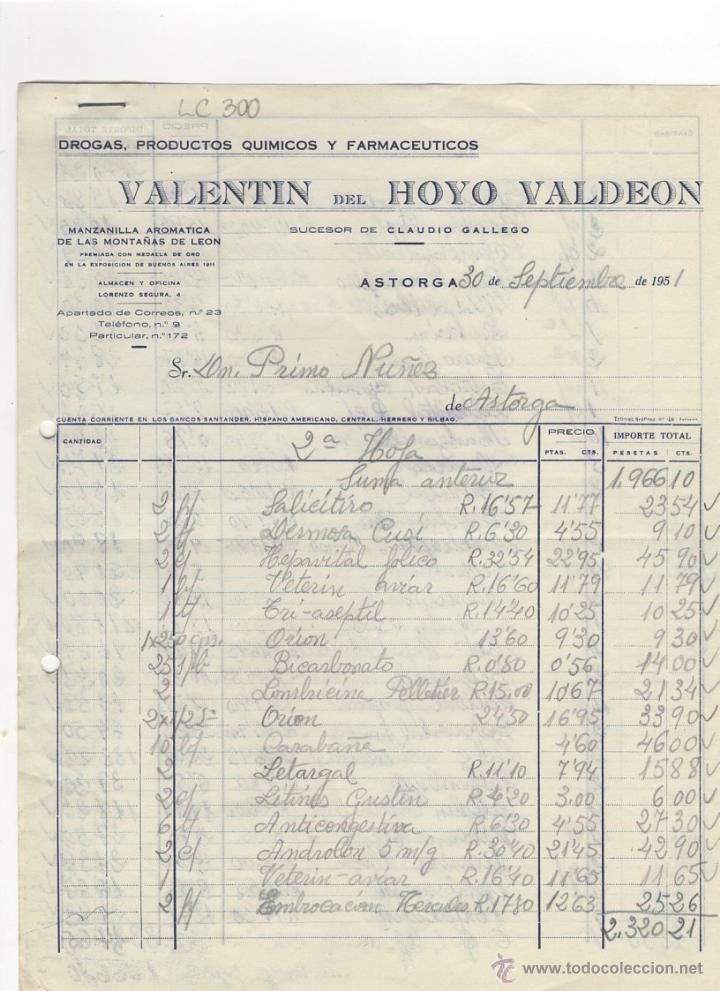 LC 300
DROGAS, PRODUCTOS QUIMICOS Y FARMACEUTICOS
VALENTIN DEL HOYO VALDEON
MANZANILLA AROMATICA
DE LAS MONTAÑAS DE LEON
PREMIADA CON MEDALLA DE ORO
EN LA EXPOSICION DE BUENOS AIRES 1911
ALMACEN Y OFICINA
LORENZO SEGURA, 4
Apartado de Correos, n.º 23
Teléfono, n.º 9
Particular, n.º 172
SUCESOR DE CLAUDIO GALLEGO
ASTORGA 30 de Septiembre de 1951
Sr. Dn. Primo Nuñez
de Astorga
CUENTA CORRIENTE EN LOS BANCOS SANTANDER, HISPANO AMERICANO, CENTRAL, HERRERO Y BILBAO.
CANTIDAD PRECIO IMPORTE TOTAL
PTAS. CTS. PESETAS CTS.
2ª Hoja
Suma anterior 1.966 10
2 f/ Salicitiro R.16'57 11'77 23 54
2 Dermosa Cusí R.6'30 4'55 9 10
2 Hepavital fólico R.32'54 22'95 45 90
1 Veterin aviar R.16'60 11'79 11 79
1 Tri-aseptil R.14'40 10'25 10 25
1x250 grs. Orion 13'60 9'30 9 30
25 Bicarbonato R.0'80 0'56 14 00
2 Lombricine Pelletier R.15,00 10'67 21 34
2x1/2 Orion 24'50 16'95 33 90
10 Carabaña 4'60 46 00
2 Letargal R.11'10 7'94 15 88
2 c/ Litines Gustin R.4'20 3,00 6 00
6 Anticongestiva R.6'30 4'55 27 30
2 c/ Androlon 5 m/g R.30'40 21'45 42 90
1 Veterin-aviar R.16'40 11'65 11 65
2 f/ Embrocacion Hercules R.17'80 12'63 25 26
2.320 21
www.todocoleccion.net